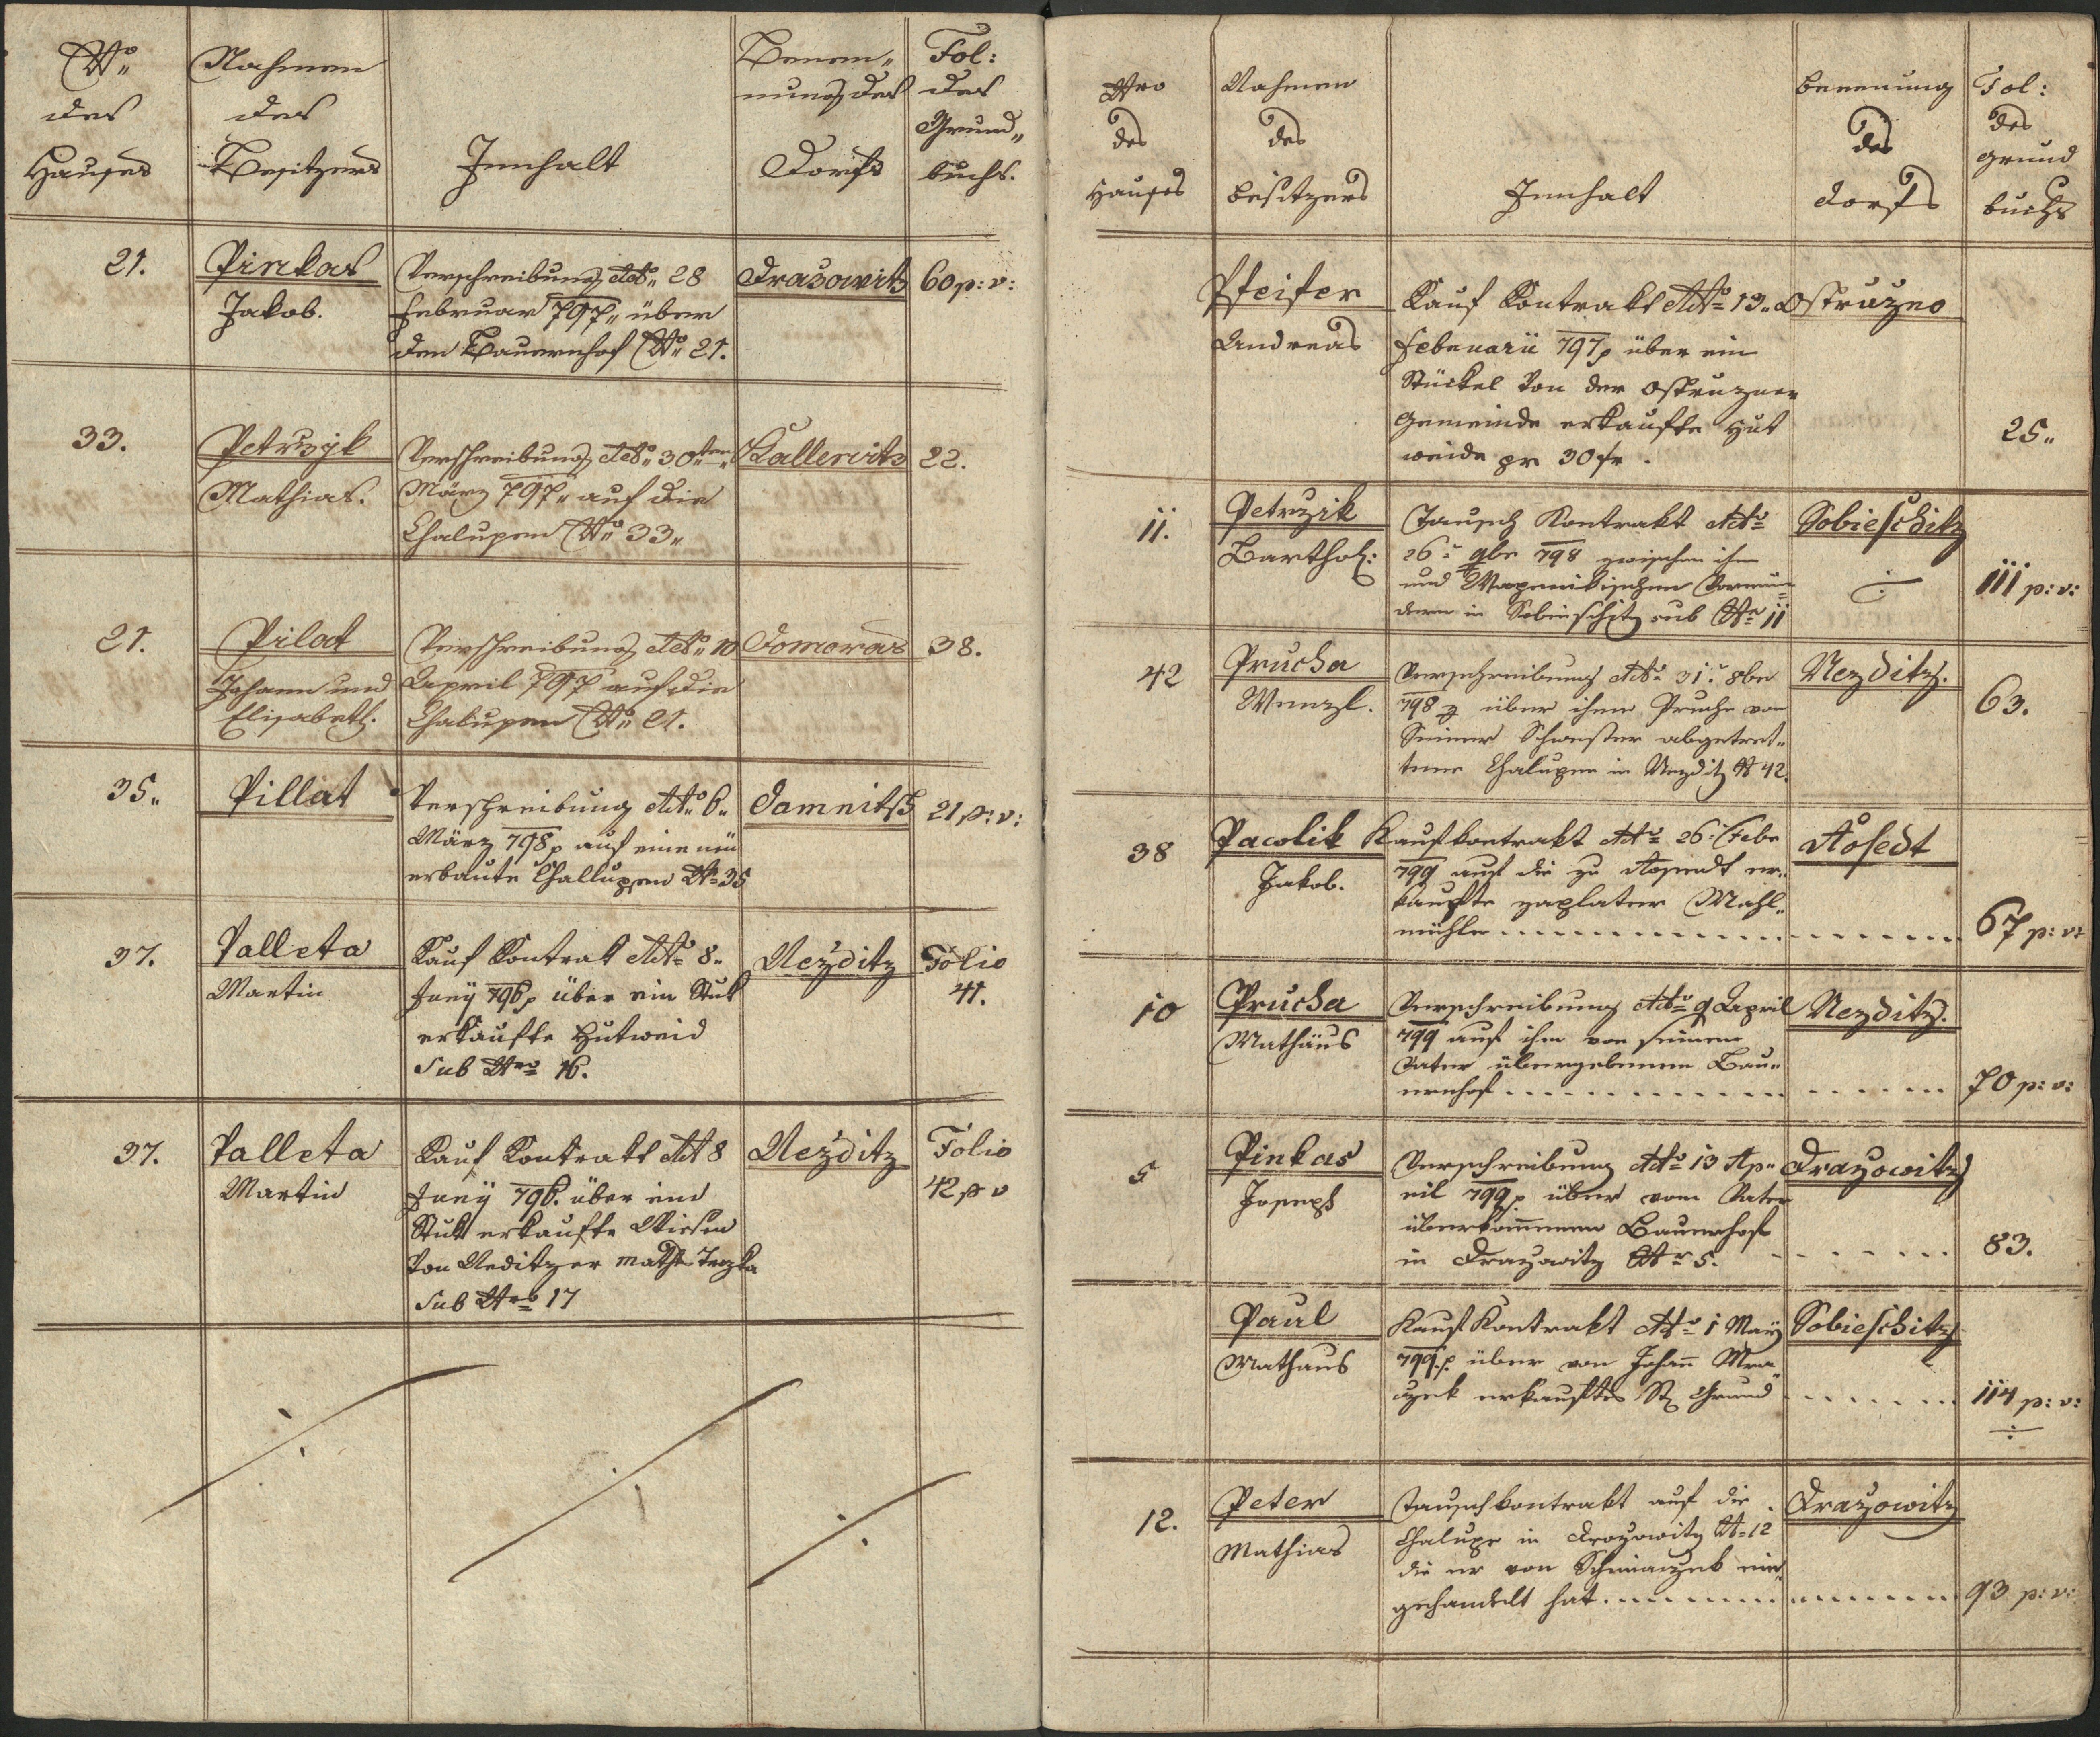 Nº
des
Hauses
Nahmen
des
Besitzers
Innhalt
Benen„
nung des
Dorfs
Fol:
des
Grund„
buchs.
21.
Pinkas
Jakob.
Verschreibung ddº„ 28
Februar 797„ über
den Bauernhof Nº„ 21.
Drazowitz
60 p: v:
33.
Petrzyk
Mathias.
Verschreibung ddº„ 30ten„
März 797„ auf die
Chalupen Nº„ 33„
Kallenitz
22.
21.
Pilat
Johann und
Elisabeth.
Verschreibung ddº„ 10
April 797 auf die
Chalupen Nº„ 21.
Domoras
38.
35„
Pillat
Verschreibung ddtº„ 6„
März 798 p auf eine neu
erbaute Challupen Nº 35
Damnitsch
21 p: v:
37.
Palleta
Martin
Kauf Kontrakt ddtº 8„
Juny 796 p über ein Stuk
erkaufte Hutweid
Sub Nro 16.
Nezditz
Folio
41.
37.
Palleta
Martin
Kauf Kontrakt ddt 8
Juny 796. über ein
Stuk erkaufte Wiesen
Von Neditzer Math Terzka
Sub Nro 17
Nezditz
Folio
42 p v
Nro
des
Hauses
Nahmen
des
Besitzers
Innhalt
Benenung
des
Dorfs
Fol:
des
Grund
buchs
Pfeifer
Andreas
Kauf Kontrakt ddtº 13„
Febenarii 797 p über ein
Stückel Von der Ostruzner
Gemeinde erkaufte Hut
weide pr 30 fr.
Ostruzno
25„
11.
Petrzik
Barthol:
Tausch Kontrakt ddtº
26t 9be 798 zwischen ihm
und
dern in Sobieschitz sub Nº 11
Sobieschitz
111 p: v:
42
Prucha
Wenzl.
Verschreibung ddtº 31t 8be
798 über ihme Prucha von
Seiner Schwester abgetret„
tene Chalupen in Nezditz N 42.
Nezditz.
63.
38
Pacolik
Jakob.
Kaufkontrakt ddtº 26t Febr
799 auf die zu Aosendt er„
kaufte zaplater Mahl„
mühle
Aosedt
67 p: v:
10
Prucha
Mathäus
Verschreibung ddtº 9 April
799 auf ihm von seinem
Vater übergebenen Bau„
ernhof
Nezditz.
70 p: v:
5
Pinkas
Joseph
Verschreibung ddtº 13 Ap„
ril 799 p über vom Vater
überkommenen Bauernhof
in Drazowitz Nr 5.
Drazowitz
83.
Paul
Mathaus
Kauf Kontrakt ddtº 1 May
799. p über von Johann Mra
czek erkauftes St. Grund
Sobieschitz
114 p: v:
12.
Peter
Mathias
Tauschkontrakt auf die
Chalupe in Drozowitz N 12
die er von ein„
gehandelt hat
Drazowitz
93 p: v: